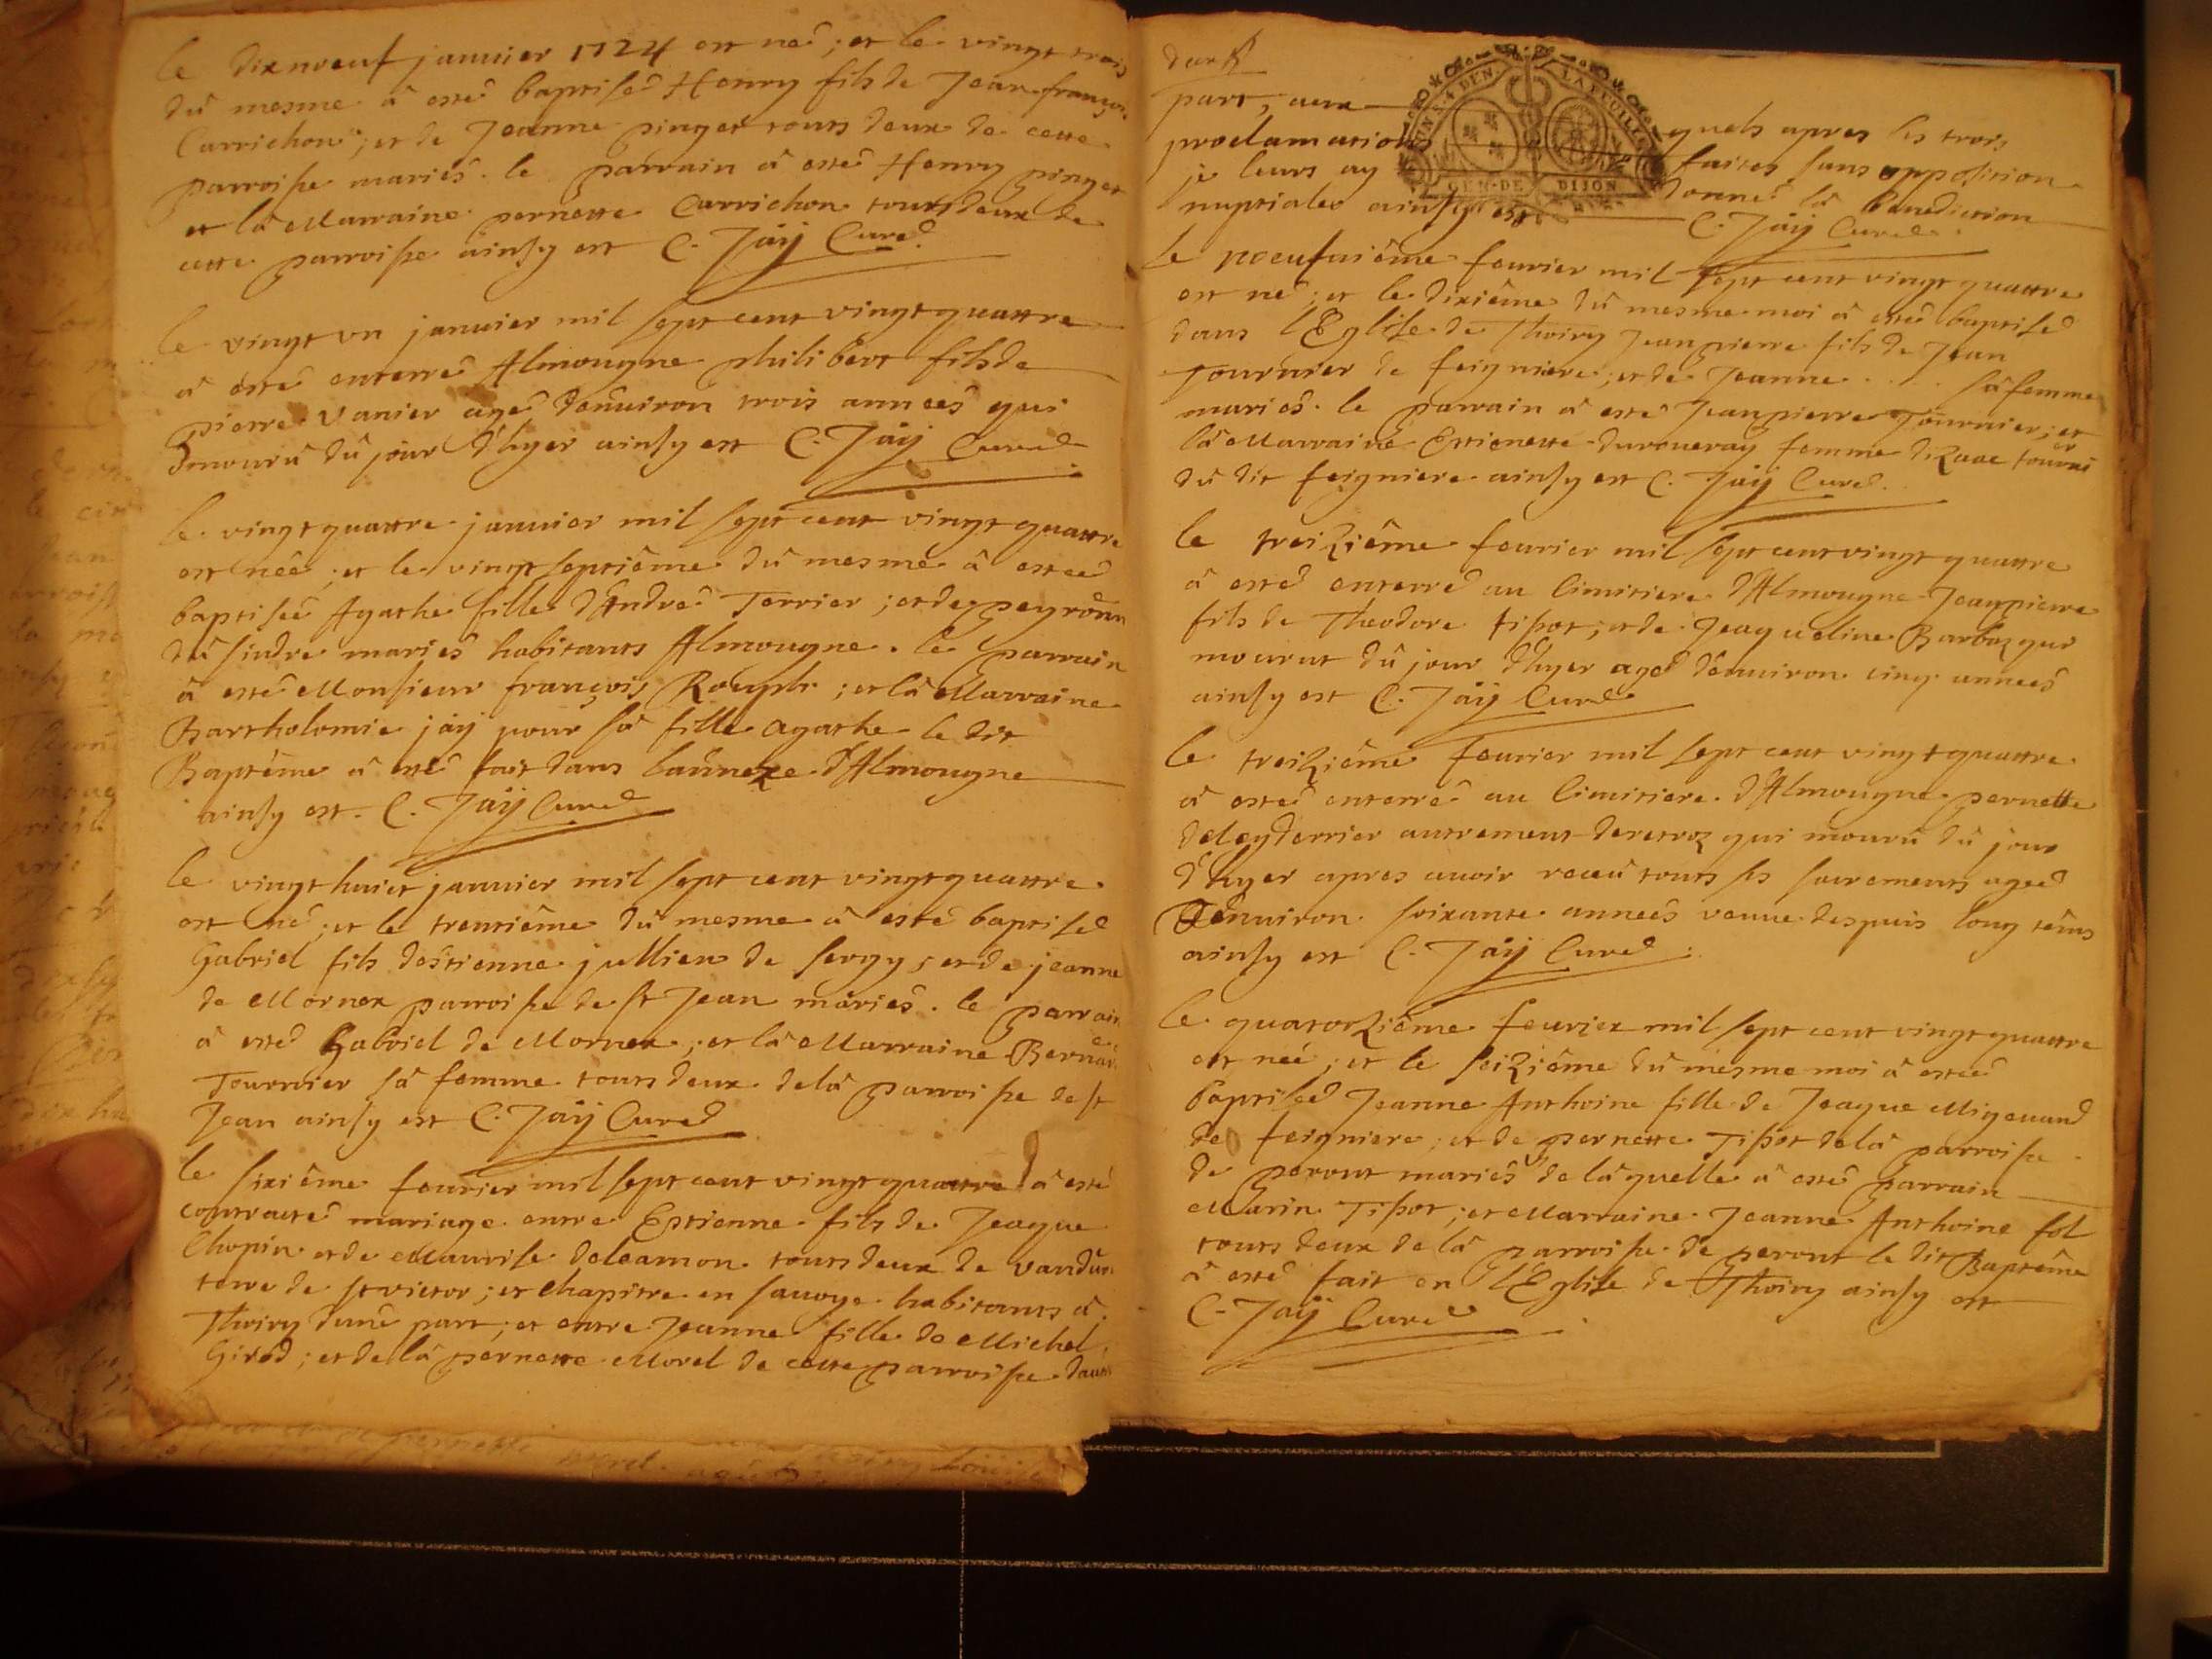 le dixneuf januier 1724 est né ; et le vingt trois
dû mesme â esté baptisé Henry fils de Jean françois
Carrichon ; et de Jeanne pinget touts deux de cette
parroisse mariés . le parrain â esté Henry pinget
et lâ Marraine pernette Carrichon touts deux de
cette parroisse ainsy est C. Jaÿ Curé
le vingt vn januier mil sept cent vingt quattre
â esté enterré Almougne philibert fils de
pierre Vanier agé d'enuiron trois années qui
mourû dû jour d'hyer ainsy est C. Jaÿ Curé
le vingt quattre januier mil sept cent vingt quattre
est née ; et le vingt septiême dû mesme â estée
baptisée Agathe fille d'André Terrier ; et de peyronne
dû sindre mariés habitants Almougne . le parrain
â esté Monsieur françois Rouph ; et lâ Marraine
Bartholomie jaÿ pour sâ fille agathe le dit
Baptême â esté fait dans l'annexe d'Almougne
ainsy est . C. Jaÿ Curé
le vingt huict januier mil sept cent vingt quattre
est né ; et le trentiême dû mesme â esté baptisé
Gabriel fils d'estienne jullien de sergy ; et de jeanne
de Mornex parroisse de st Jean mariés . le parrain
â esté Gabriel de Mornex ; et lâ Marraine Bernarde
Tournier sâ femme touts deux de lâ parroisse de st
Jean ainsy est C. Jaÿ Curé
le sixiême feurier mil sept cent vingt quattre â esté
contracté mariage entre Estienne fils de Jeaque
Chopin et de Maurise deleamon touts deux de
terre de st victor ; et chapitre en sauoye habitants â
Thoiry d'une part ; et entre Jeanne fille de Michel
Girod ; et de lâ pernette Morel de cette parroisse d'autre
d'autre
part ; aux quels apres les trois
proclamations faites sans opposition
je leurs ay donné lâ benediction
nuptiales ainsy est C. Jaÿ Curé
GEN. DE DIJON
le neufuiême feurier mil sept cent vingt quattre
est né ; et le dixiême dû mesme moi â esté baptisé
dans l'Eglise de Thoiry Jean pierre fils de Jean
Tournier de feigniere ; et de Jeanne . . . . sâ femme
mariés . le parrain â esté Jean pierre Tournier ; et
lâ Marraine Estienette duroueray femme d'Isaac tournier
dû dit feigniere ainsy est C. Jaÿ Curé
le treiziême feurier mil sept cent vingt quattre
â esté enterré au Cimitiere d'Almougne Jean pierre
fils de Theodore tissot ; et de Jeaqueline Barbaz qui
mourut dû jour d'hyer agé d'enuiron cinq années
ainsy est C. Jaÿ Curé
le treiziême feurier mil sept cent vingt quattre
â estée enterrée au Cimitiere d'Almougne pernette
deleyderrier autrement deretroz qui mourû dû jour
d'hyer apres auoir receû touts ses sacrements agée
d'enuiron soixante années veuue despuis long têms
ainsy est C. Jaÿ Curé
le quatorziême feurier mil sept cent vingt quattre
est née ; et le seiziême dû mesme moi â estée
baptisée Jeanne Anthoine fille de Jeaque Migeuand
de feigniere ; et de pernette Tissot de lâ parroisse
de peront mariés de lâ quelle â esté parrain
Marin Tissot ; et Marraine Jeanne Anthoine fol
touts deux de lâ parroisse de peront le dit Baptême
â esté fait en l'Eglise de Thoiry ainsy est
C. Jaÿ Curé